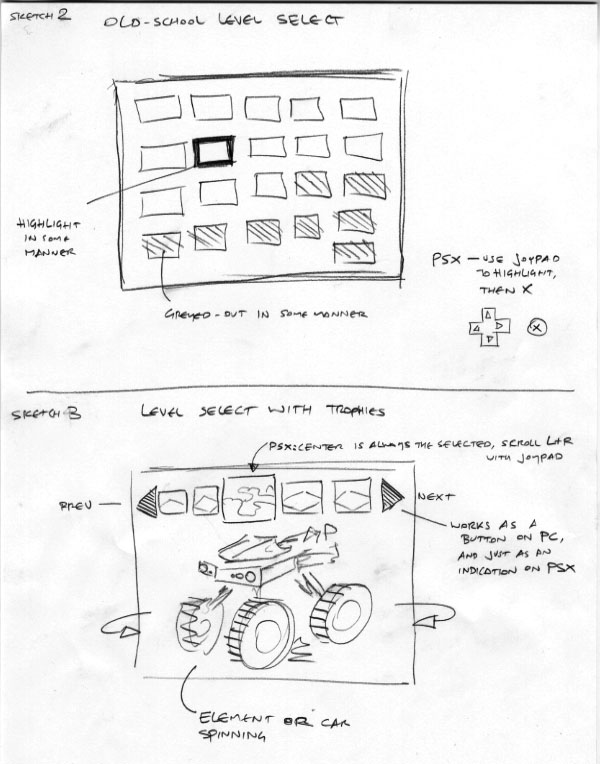 SKETCH 2
OLD-SCHOOL LEVEL SELECT
HIGHLIGHT
IN SOME
MANNER
GREYED-OUT IN SOME MANNER
PSX — USE JOYPAD
TO HIGHLIGHT,
THEN X
X
SKETCH 3
LEVEL SELECT WITH TROPHIES
PSX: CENTER IS ALWAYS THE SELECTED, SCROLL L+R
WITH JOYPAD
PREV
NEXT
WORKS AS A
BUTTON ON PC,
AND JUST AS AN
INDICATION ON PSX
ELEMENT OR CAR
SPINNING